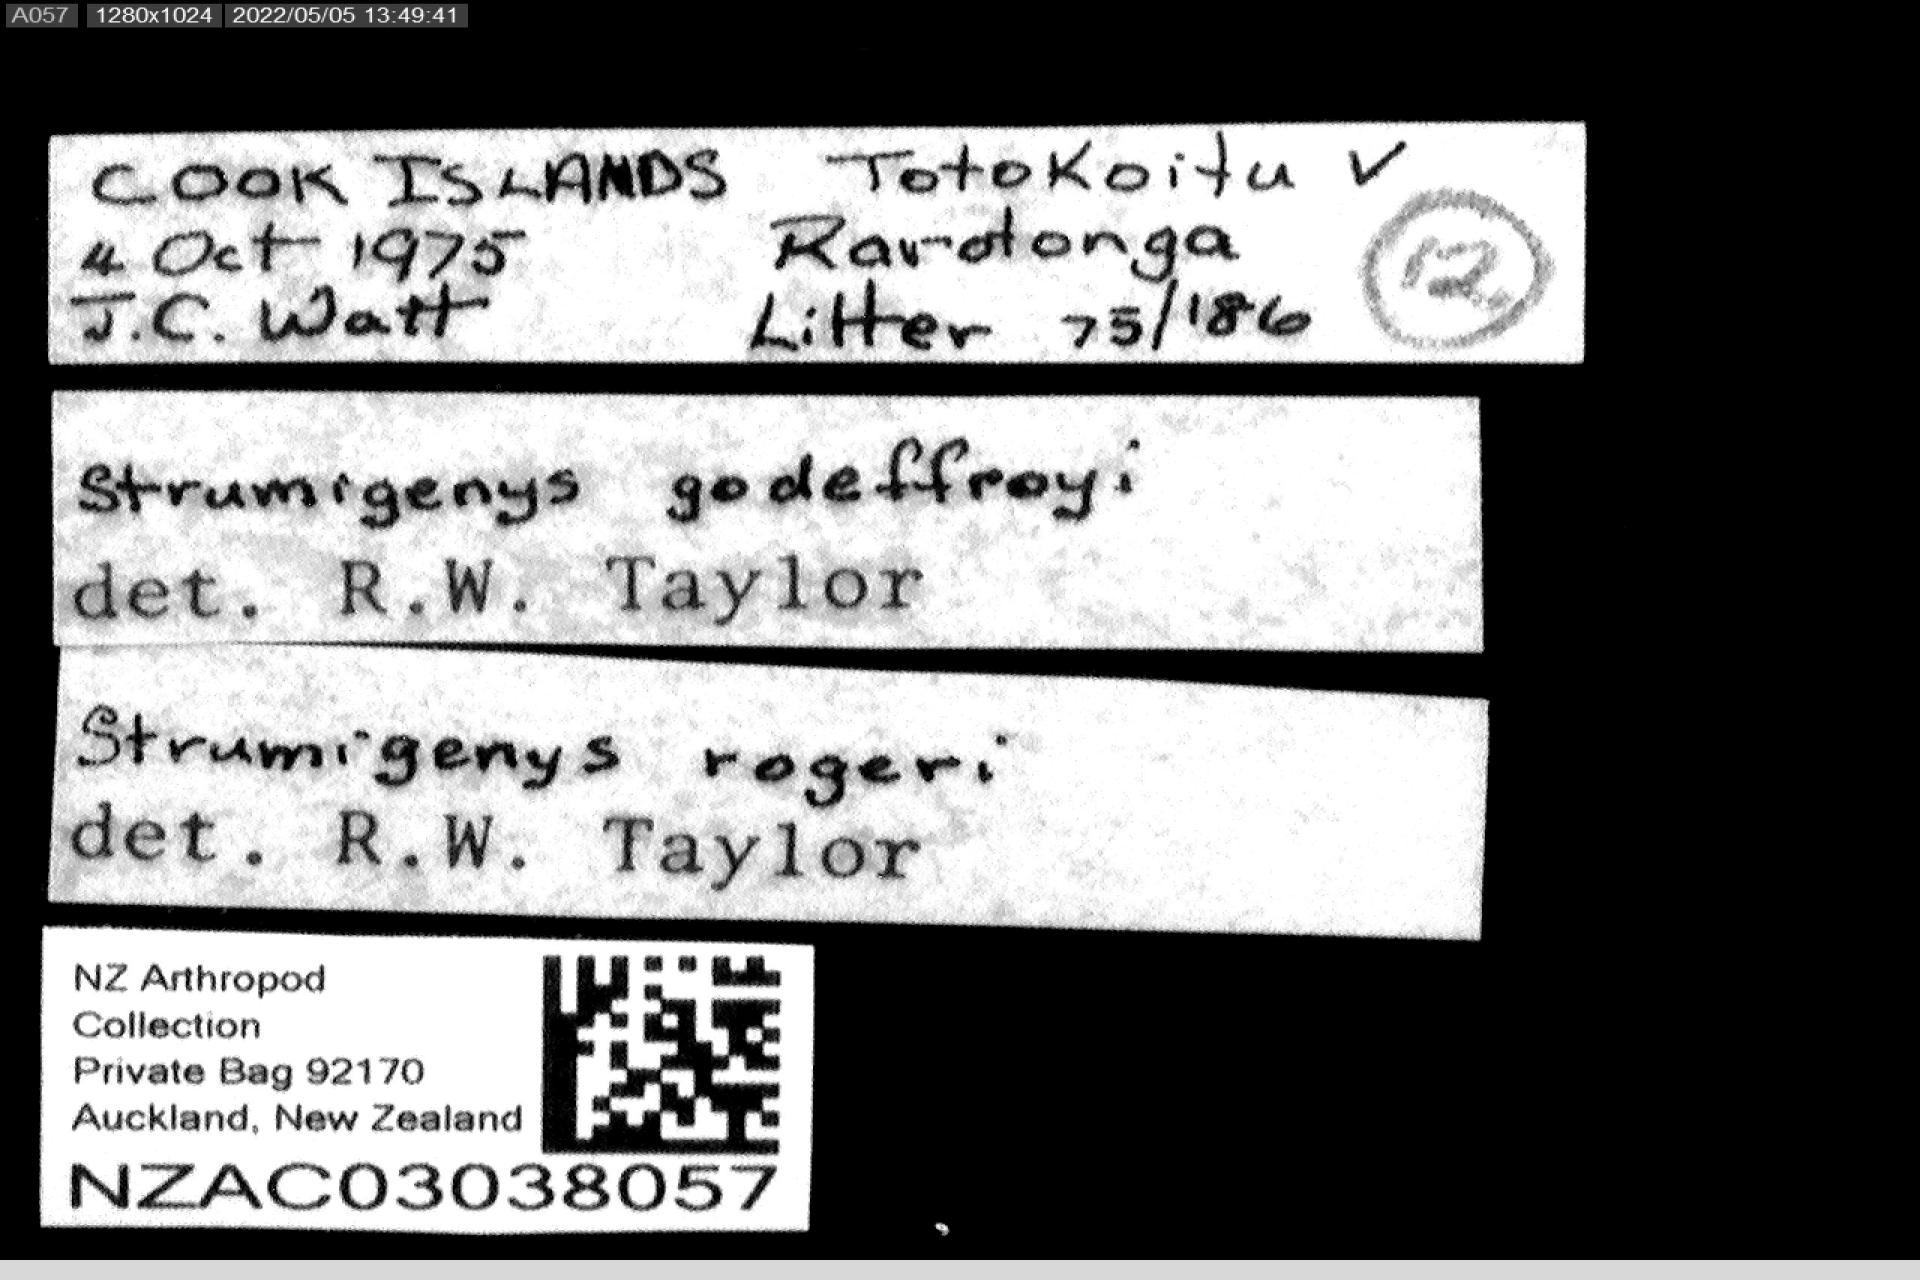 A057 1280x1024 2022/05/05 13:49:41
COOK ISLANDS Totokoitu V
4 Oct 1975 Rarotonga
J.C. Watt Litter 75/186
12
Strumigenys godeffroyi
det. R.W. Taylor
Strumigenys rogeri
det. R.W. Taylor
NZ Arthropod
Collection
Private Bag 92170
Auckland, New Zealand
NZAC03038057